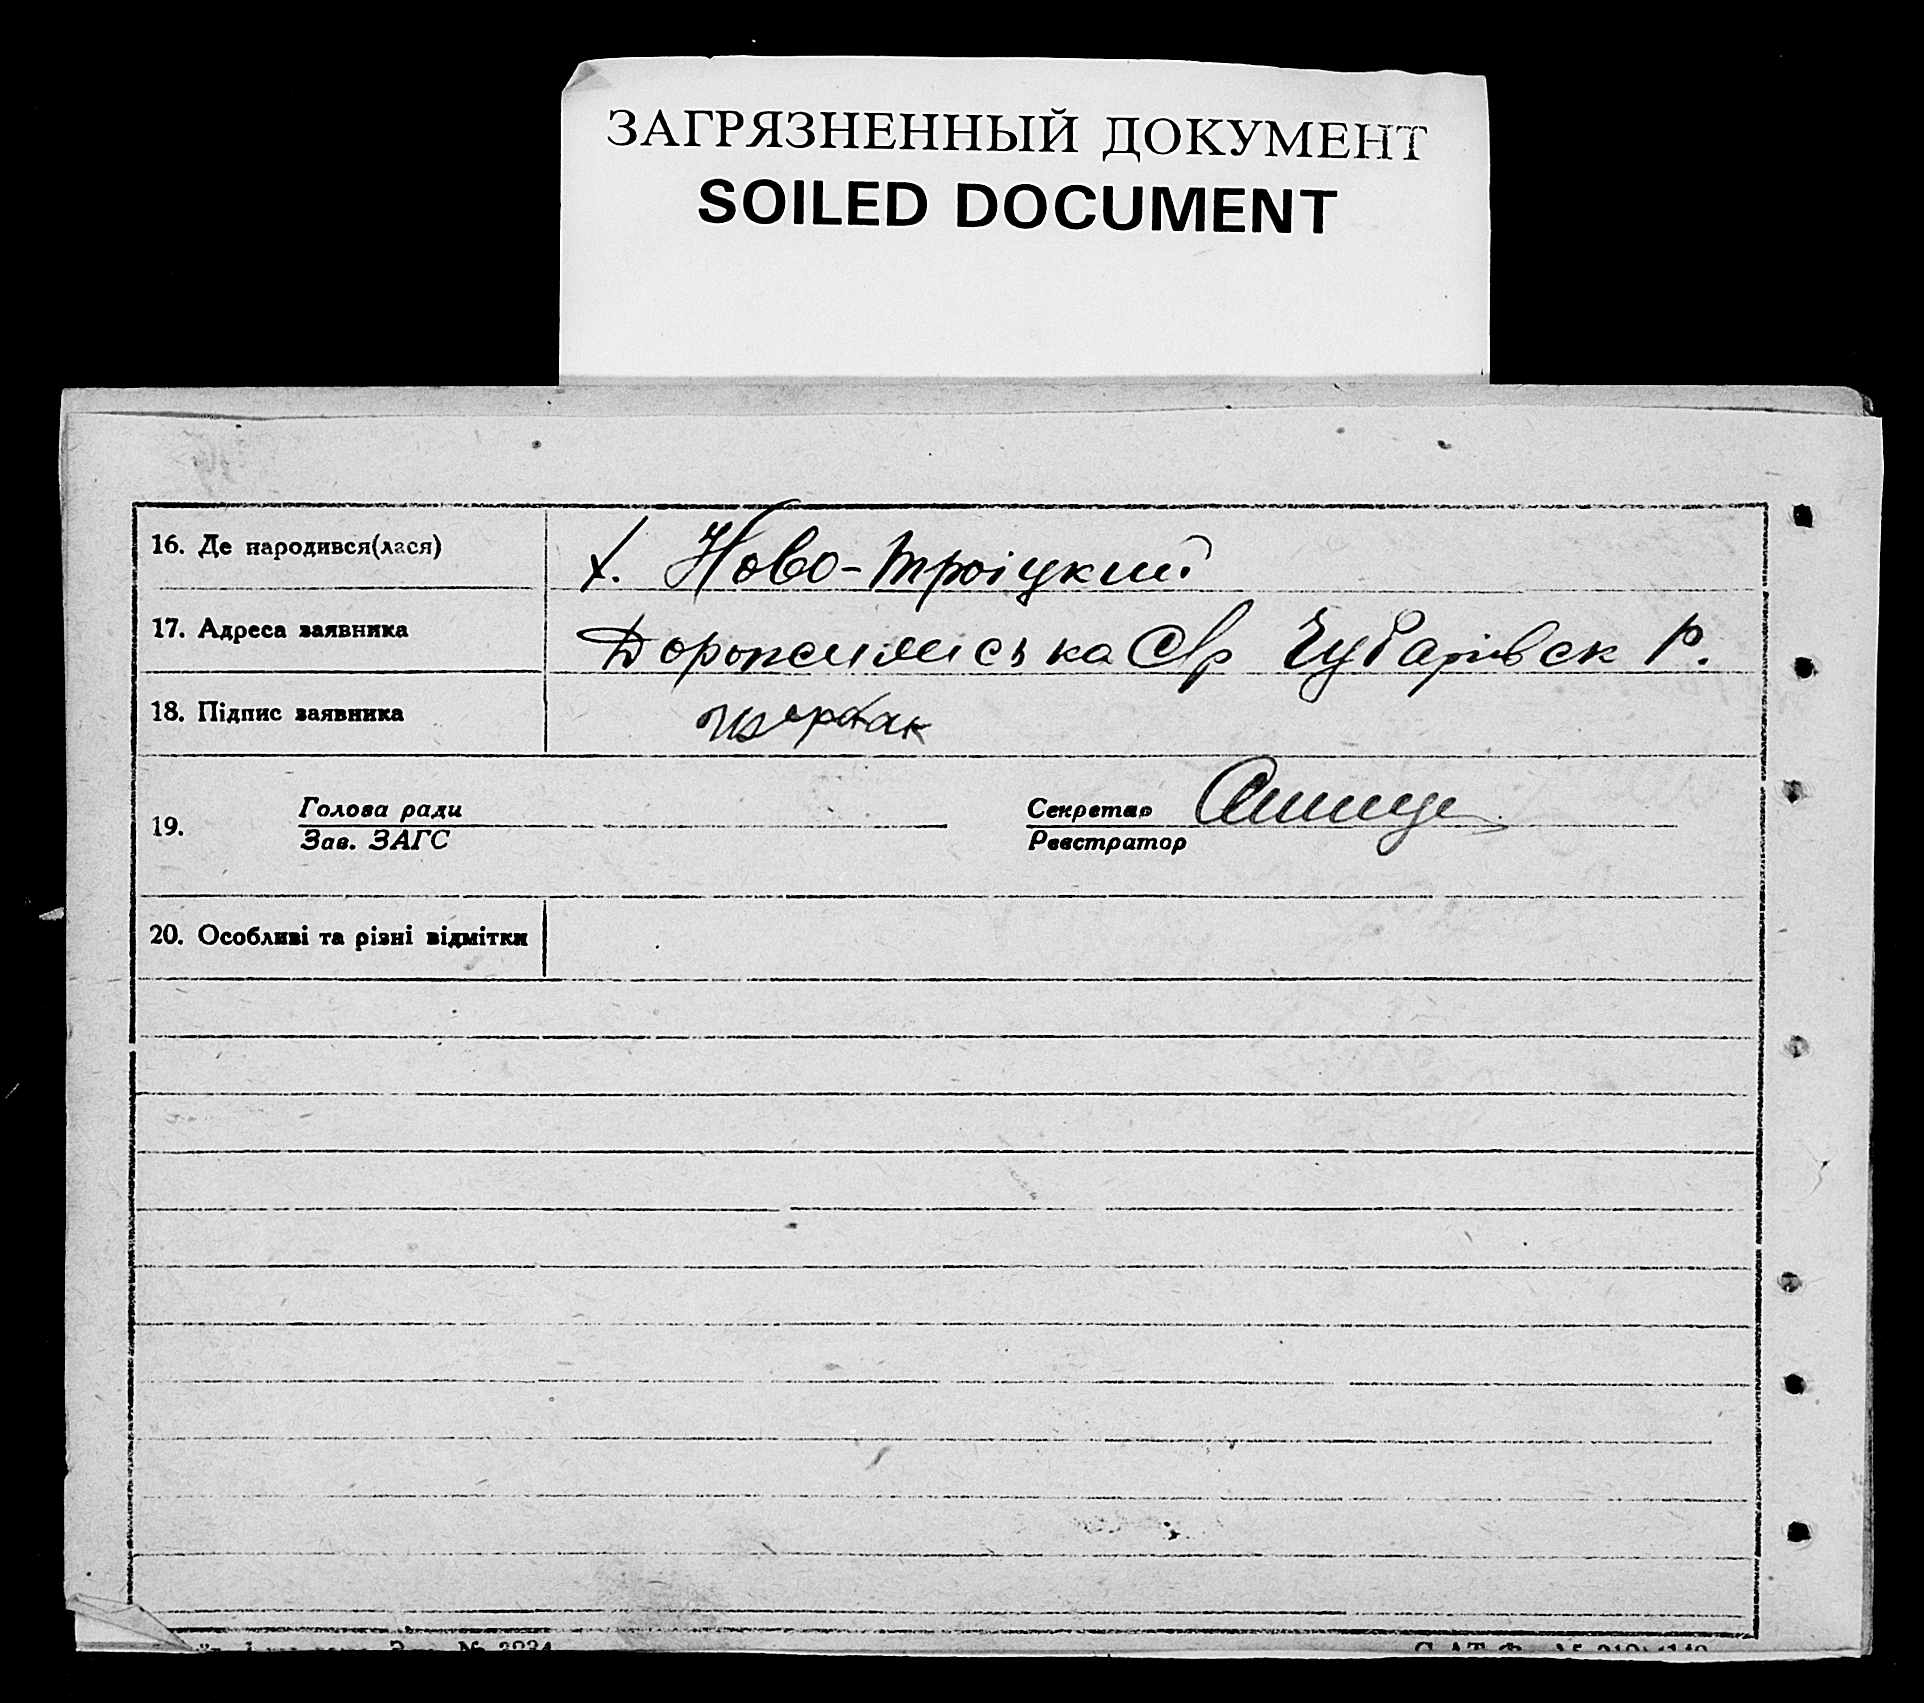 ЗАГРЯЗНЕННЫЙ ДОКУМЕНТ
SOILED DOCUMENT
16. Де народився(лася) х. Ново-Троіцкий
17. Адреса заявника С/р Чубарівск р.
18. Підпис заявника
19. Голова ради
Зав. ЗАГС
Секретар
Реєстратор
20. Особливі та різні відмітки